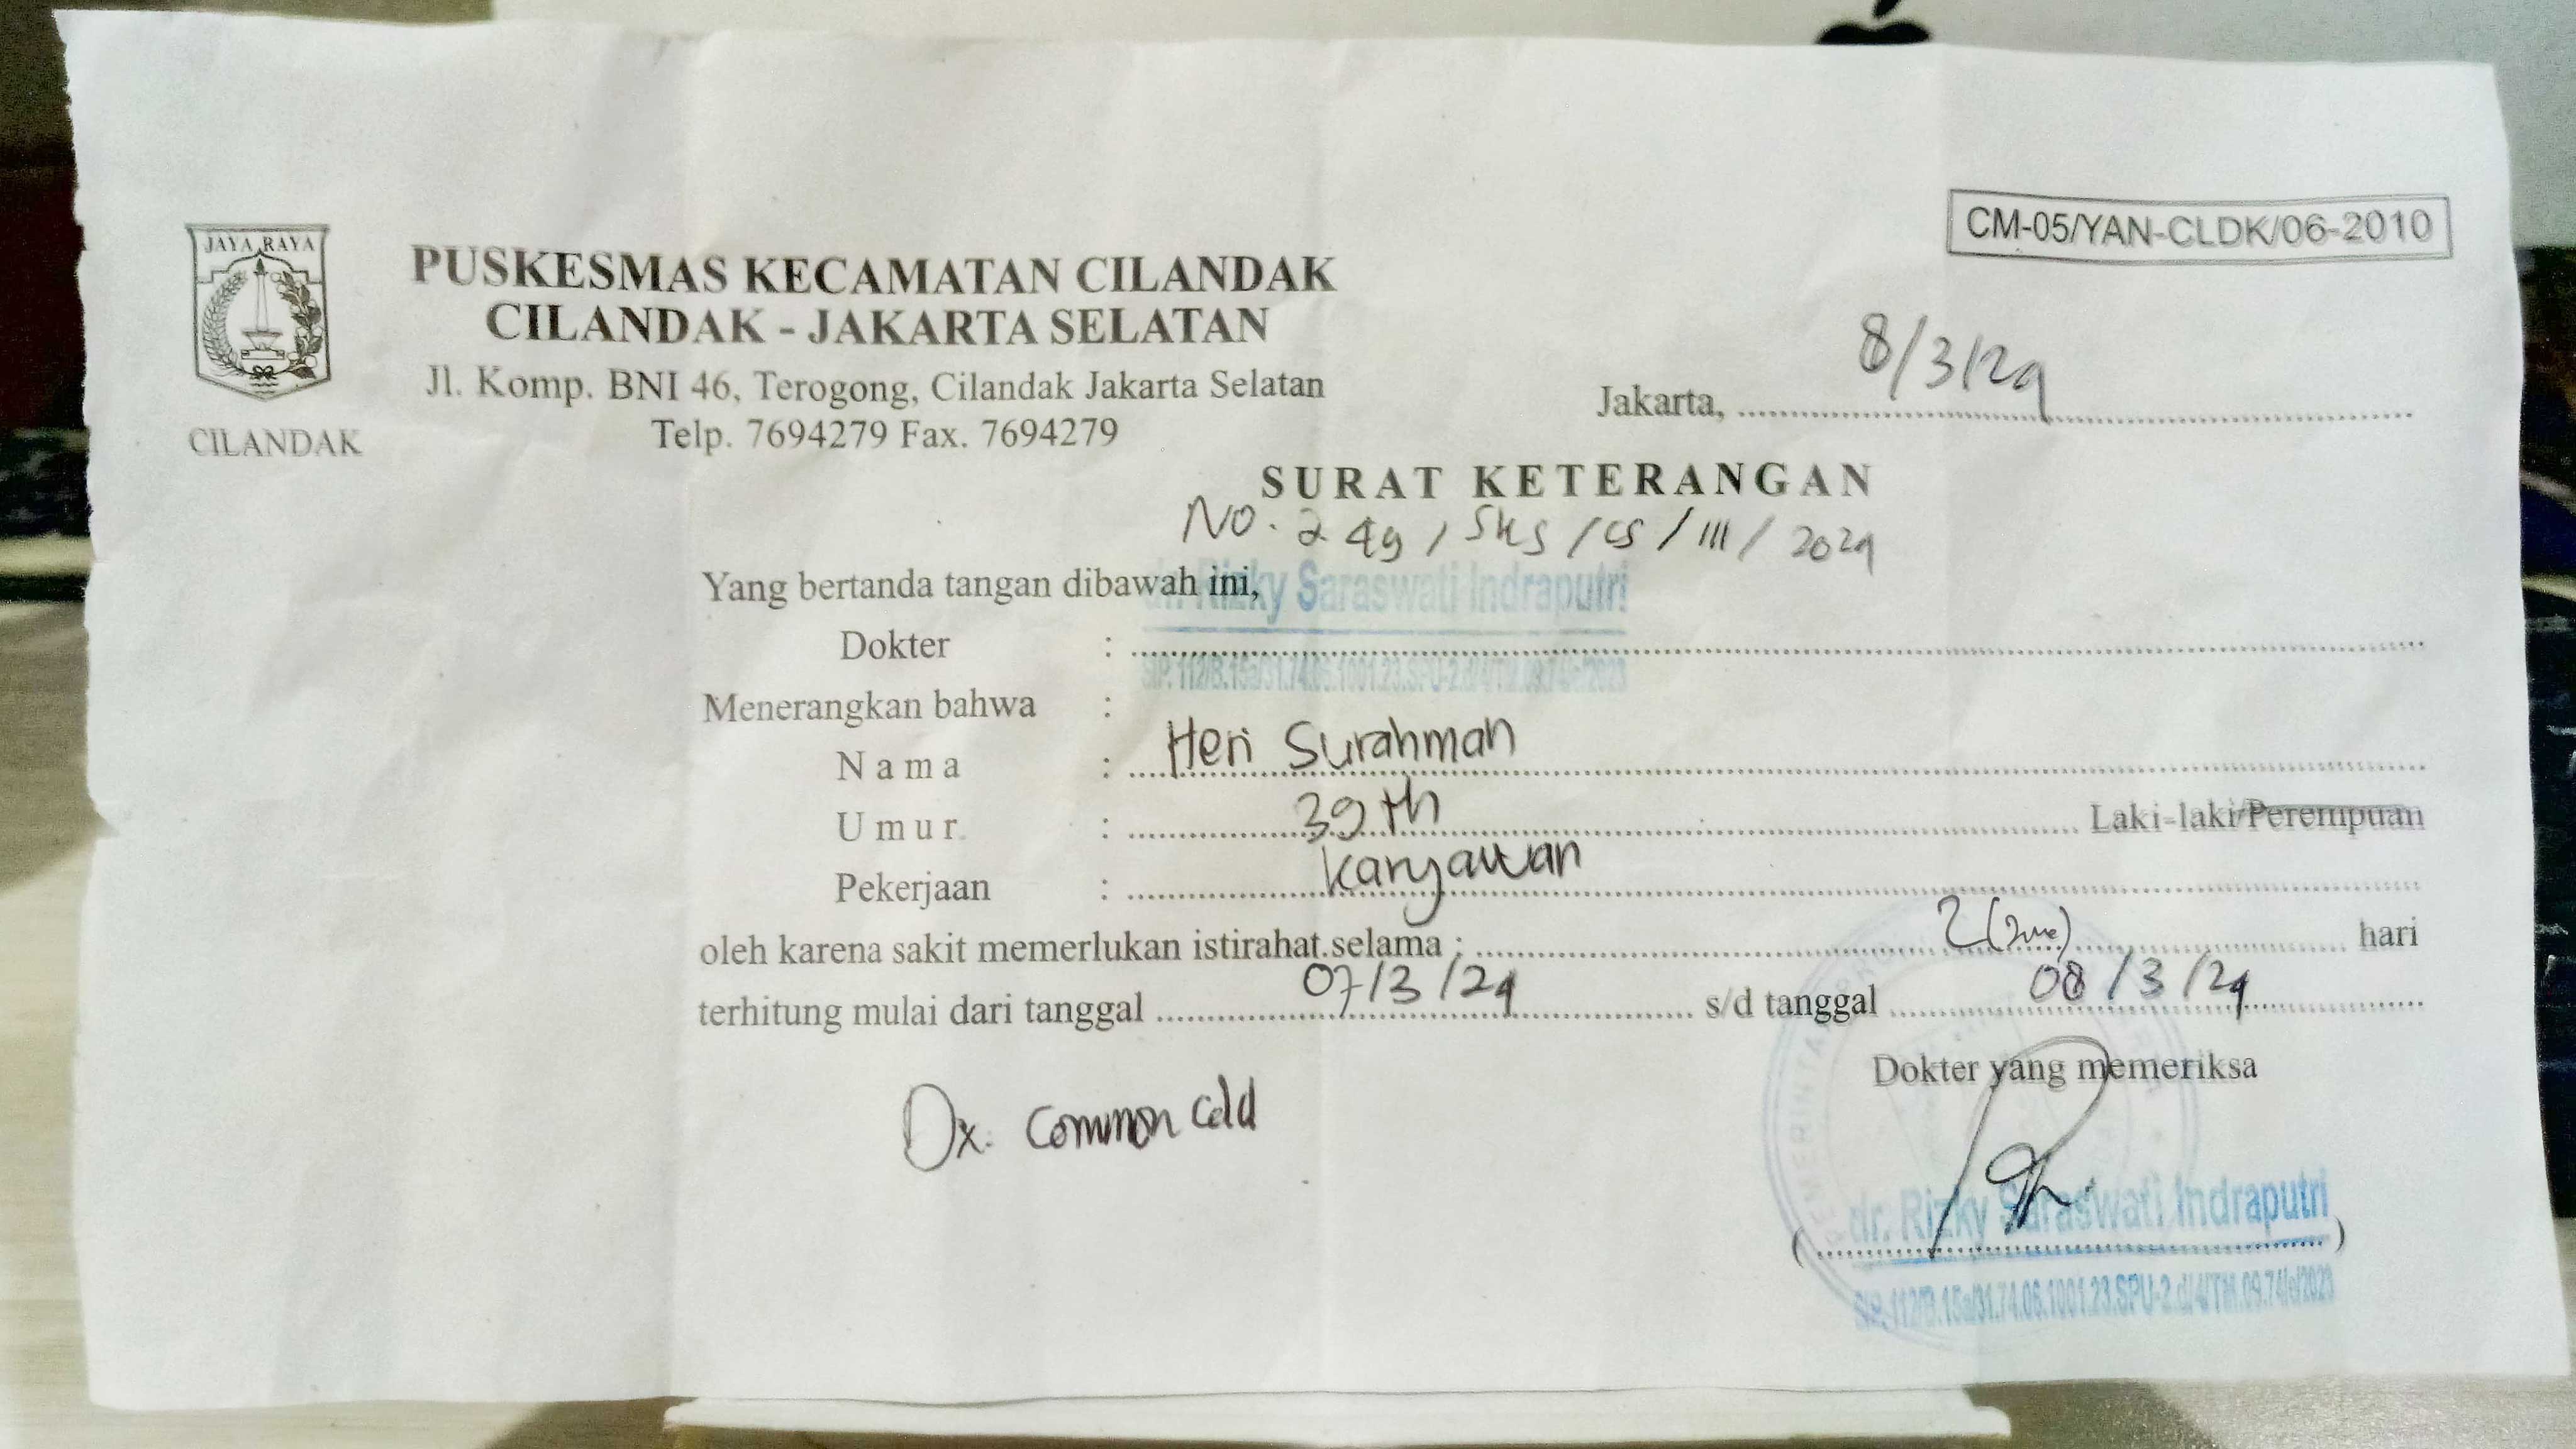 JAYA RAYA
CILANDAK
PUSKESMAS KECAMATAN CILANDAK
CILANDAK - JAKARTA SELATAN
Jl. Komp. BNI 46, Terogong, Cilandak Jakarta Selatan
Telp. 7694279 Fax. 7694279
CM-05/YAN-CLDK/06-2010
Jakarta, 8/3/24
SURAT KETERANGAN
No. 249 / SKS / CS / III / 2024
Yang bertanda tangan dibawah ini,
dr. Rizky Saraswati Indraputri
Dokter :
Menerangkan bahwa :
Nama : Heri Surahman
Umur : 39 th Laki-laki/Perempuan
Pekerjaan : Karyawan
oleh karena sakit memerlukan istirahat selama : 2 (dua) hari
terhitung mulai dari tanggal 07/3/24 s/d tanggal 08/3/24
Dokter yang memeriksa
Dx. Common Cold
dr. Rizky Saraswati Indraputri
( )